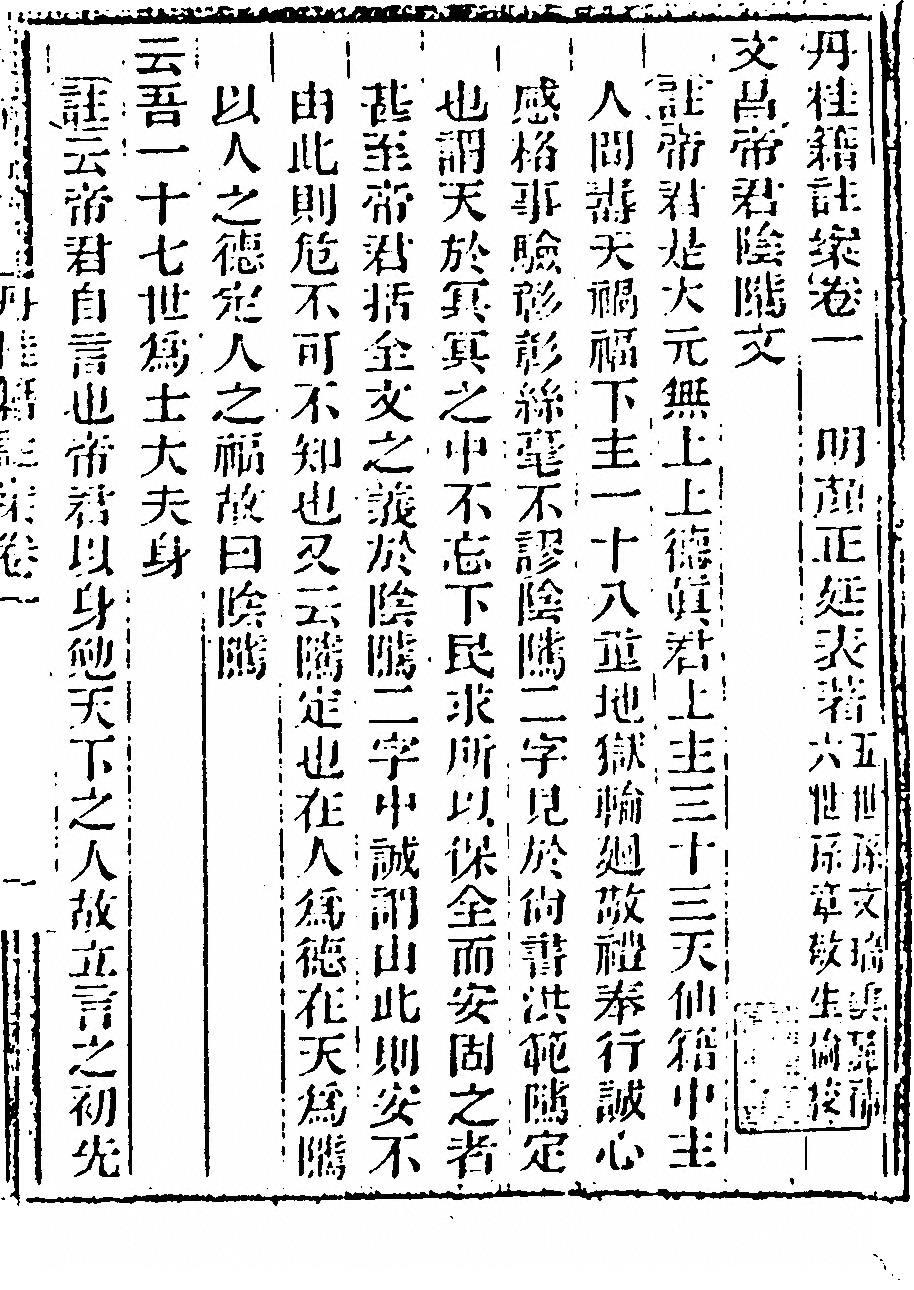 丹桂籍註案卷一　明顏正廷表著
五世孫文瑞
六世孫章敬生愉校
文昌帝君陰隲文
註帝君是大元無上上德眞君上主三十三天仙籍中主
人間壽夭禍福下主一十八重地獄輪廻敬禮奉行誠心
感格事驗彰彰絲毫不謬陰隲二字見於尙書洪範隲定
也謂天於冥冥之中不忘下民求所以保全而安固之者
甚至帝君括全文之義於陰隲二字中誠謂由此則安不
由此則危不可不知也又云隲定也在人爲德在天爲隲
以人之德定人之福故曰陰隲
云吾一十七世爲士大夫身
註云帝君自言也帝君以身勉天下之人故立言之初先
丹桂籍註案卷一
一